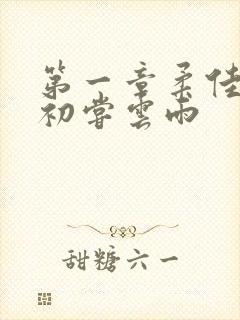 第一章柔佳
初嘗雲雨
甜糖六一